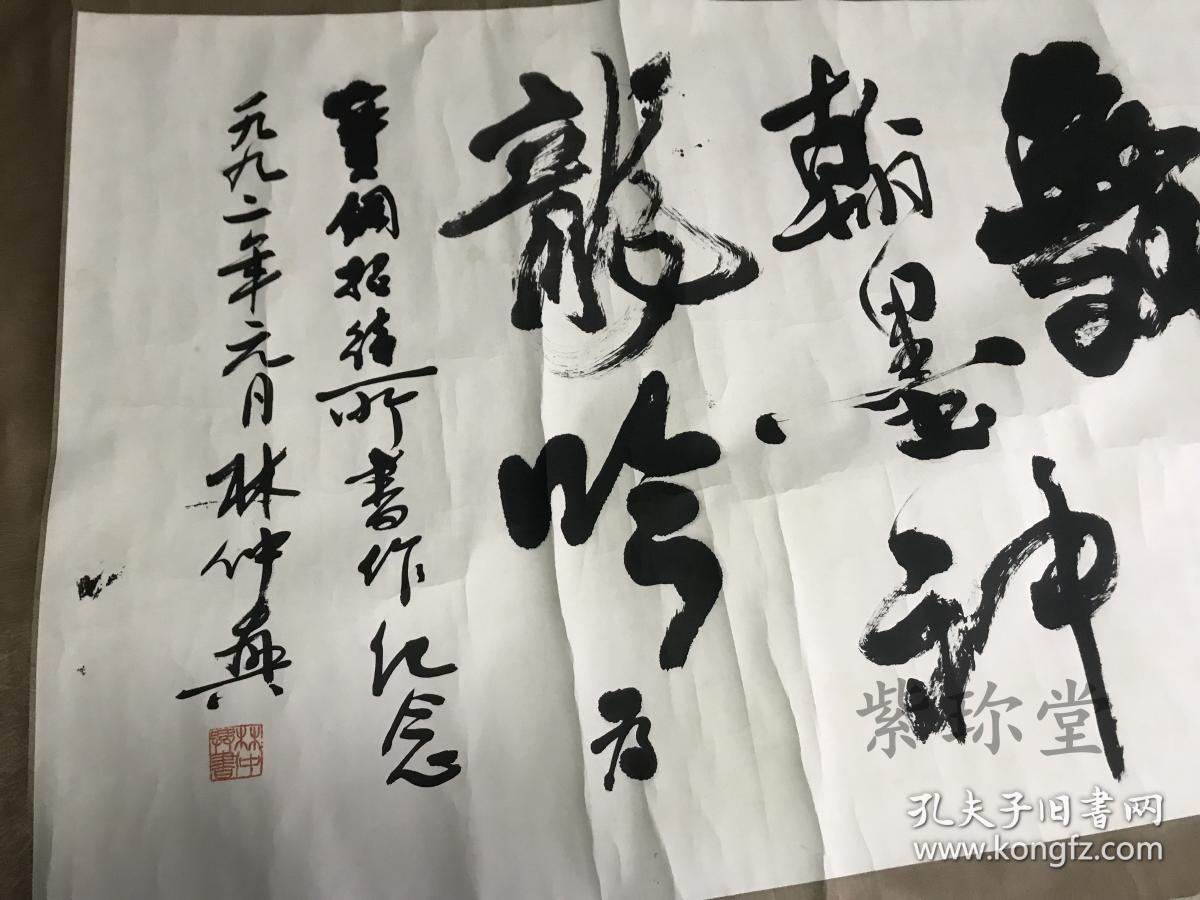 翰墨神
龍吟为
寶鋼招待所書作纪念
一九九二年元月林仲興
林仲興書
紫珎堂
孔夫子旧書网
www.kongfz.com